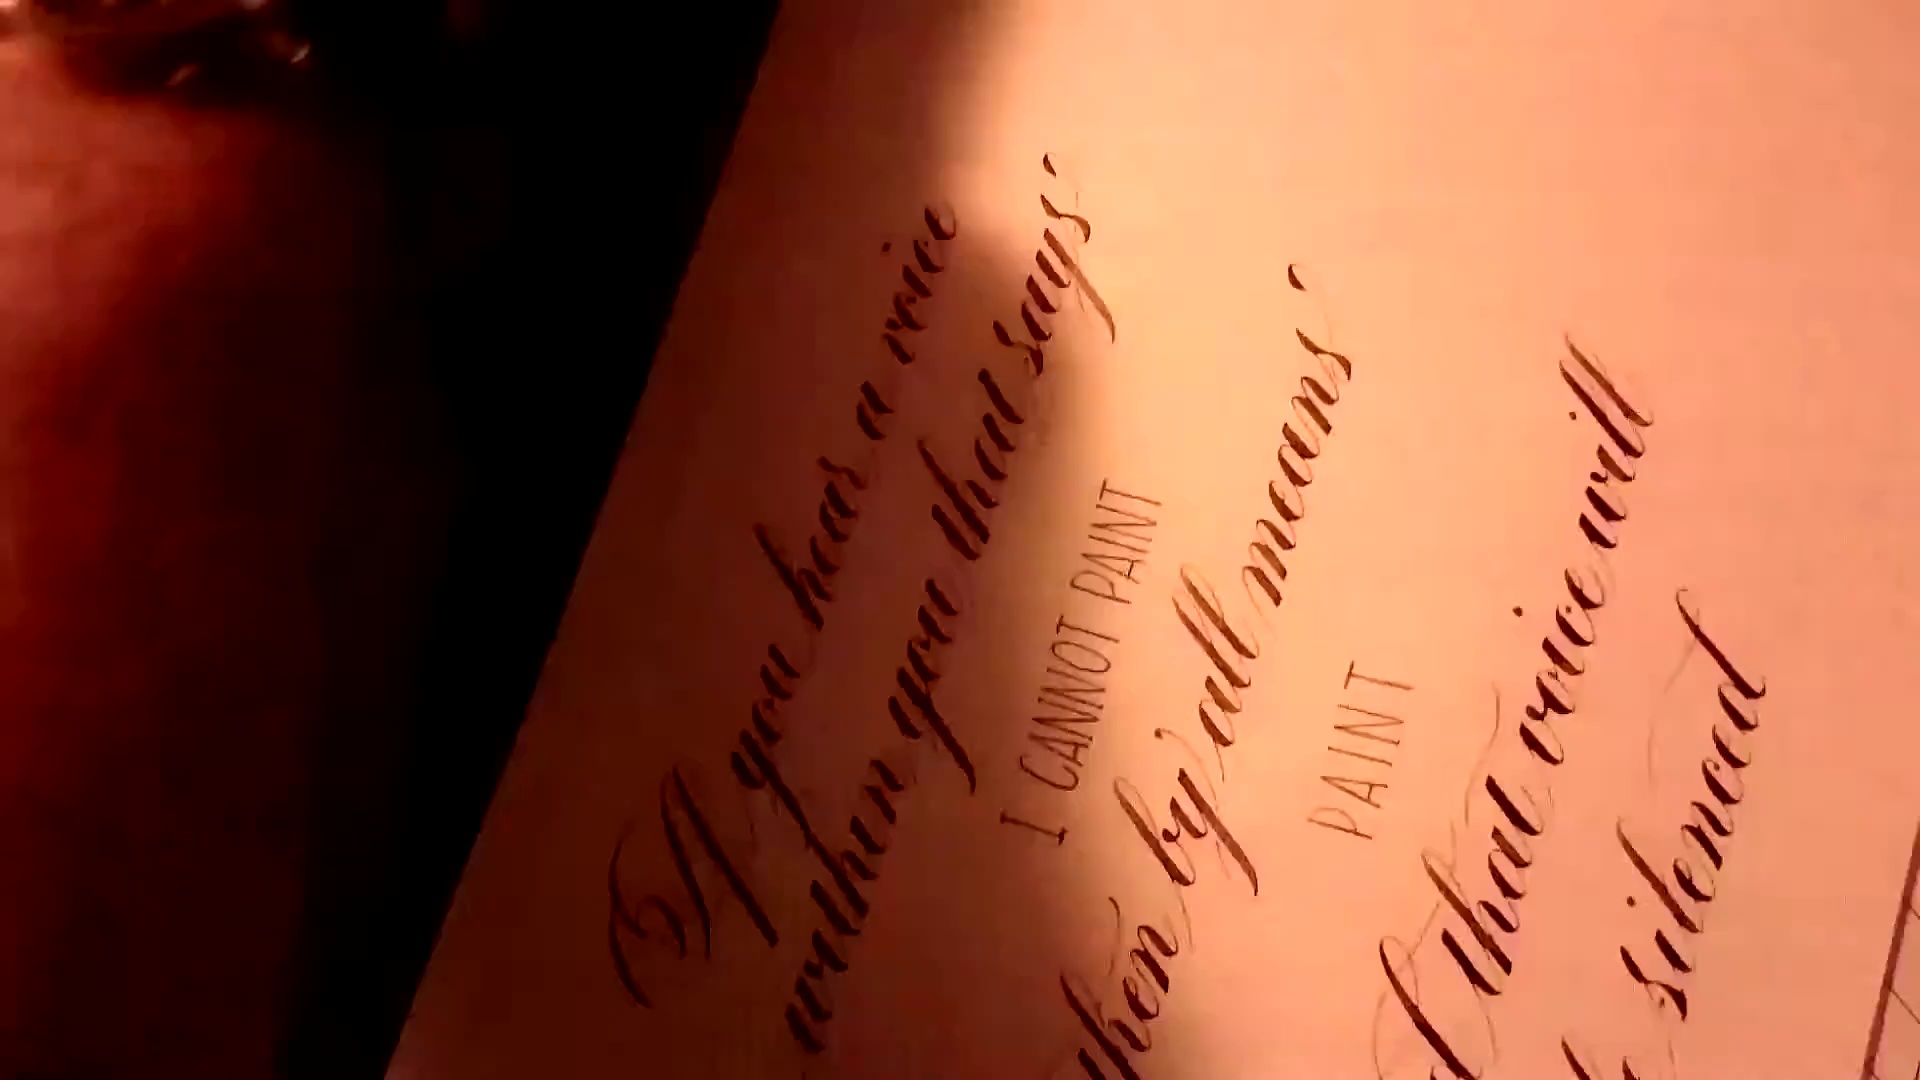 If you hear a voice
within you that says
I CANNOT PAINT
then by all means
PAINT
that voice will
be silenced